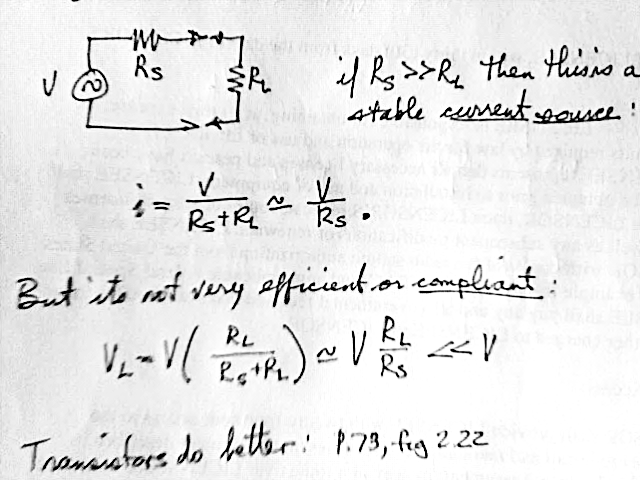 V
Rs
RL
if Rs >> RL then this is a
stable current source:
i = V / (Rs + RL) ≃ V / Rs .
But its not very efficient or compliant:
VL = V ( RL / (Rs + RL) ) ≃ V RL / Rs << V
Transistors do better: P.73, fig 2.22